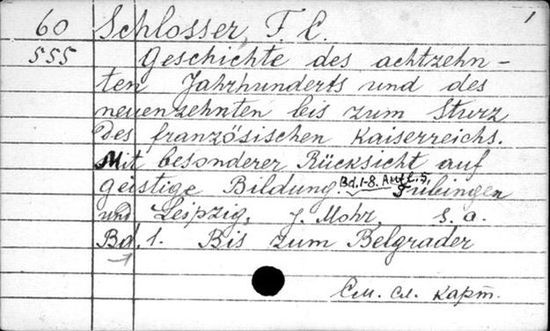 60 Schlosser, F. C. 1
555 Geschichte des achtzehn-
ten Jahrhunderts und des
neuenzehnten bis zum Sturz
des französischen Kaiserreichs.
Mit besonderer Rücksicht auf
geistige Bildung. Bd. 1-8. Aufl. 5, Tübingen
und Leipzig, J. Mohr, s. a.
Bd. 1. Bis zum Belgrader
См. сл. карт.